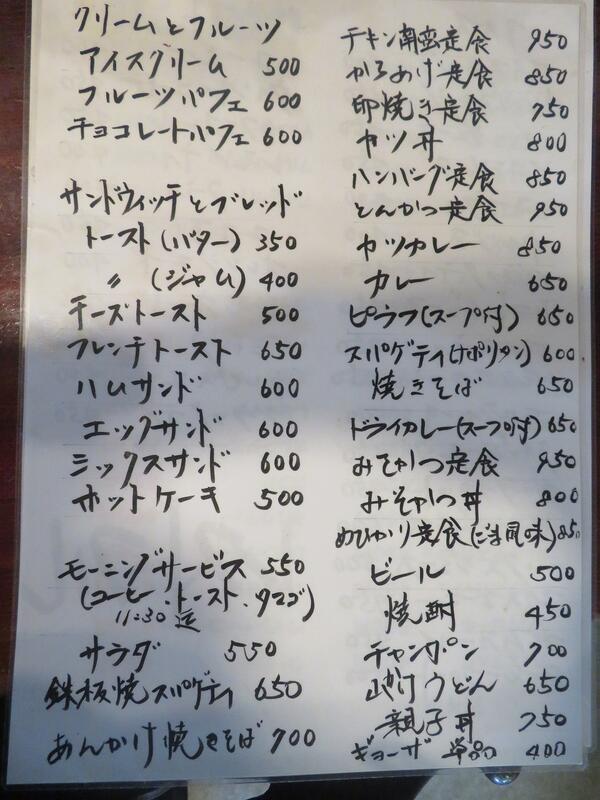 クリームとフルーツ
アイスクリーム 500
フルーツパフェ 600
チョコレートパフェ 600
サンドウィッチとブレッド
トースト(バター) 350
〃 (ジャム) 400
チーズトースト 500
フレンチトースト 650
ハムサンド 600
エッグサンド 600
ミックスサンド 600
ホットケーキ 500
モーニングサービス 550
(コーヒー.トースト.タマゴ)
11:30迄
サラダ 550
鉄板焼スパゲティ 650
あんかけ焼きそば 700
チキン南蛮定食 950
からあげ定食 850
卵焼き定食 750
カツ丼 800
ハンバーグ定食 850
とんかつ定食 950
カツカレー 850
カレー 650
ピラフ(スープ付) 650
スパゲティ(ナポリタン) 600
焼きそば 650
ドライカレー(スープ付) 650
みそかつ定食 950
みそかつ丼 800
めひかり定食(ごま風味) 850
ビール 500
焼酎 450
チャンポン 700
山かけうどん 650
親子丼 750
ギョーザ 単品 400